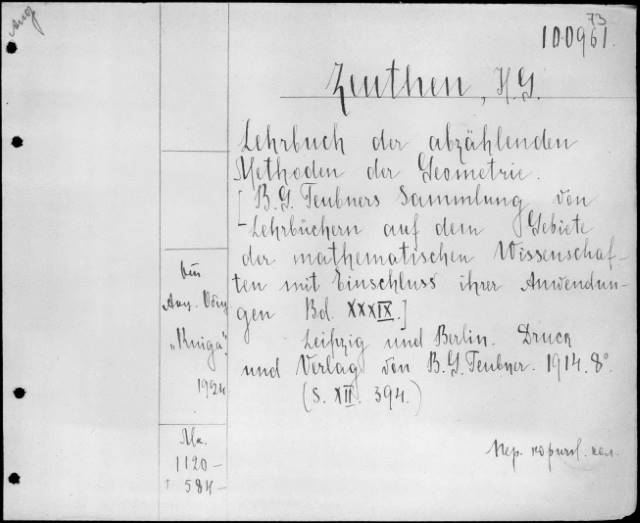 73
100961.
Zeuthen, H.G.
Lehrbuch der abzählenden
Methoden der Geometrie.
[B.G. Teubners Sammlung von
Lehrbüchern auf dem Gebiete
der mathematischen Wissenschaf-
ten mit Einschluss ihrer Anwendun-
gen Bd. XXXIX.]
Leipzig und Berlin. Druck
und Verlag von B.G. Teubner. 1914. 8°
(S. XII. 394.)
"Kniga"
1924
1120-
584-